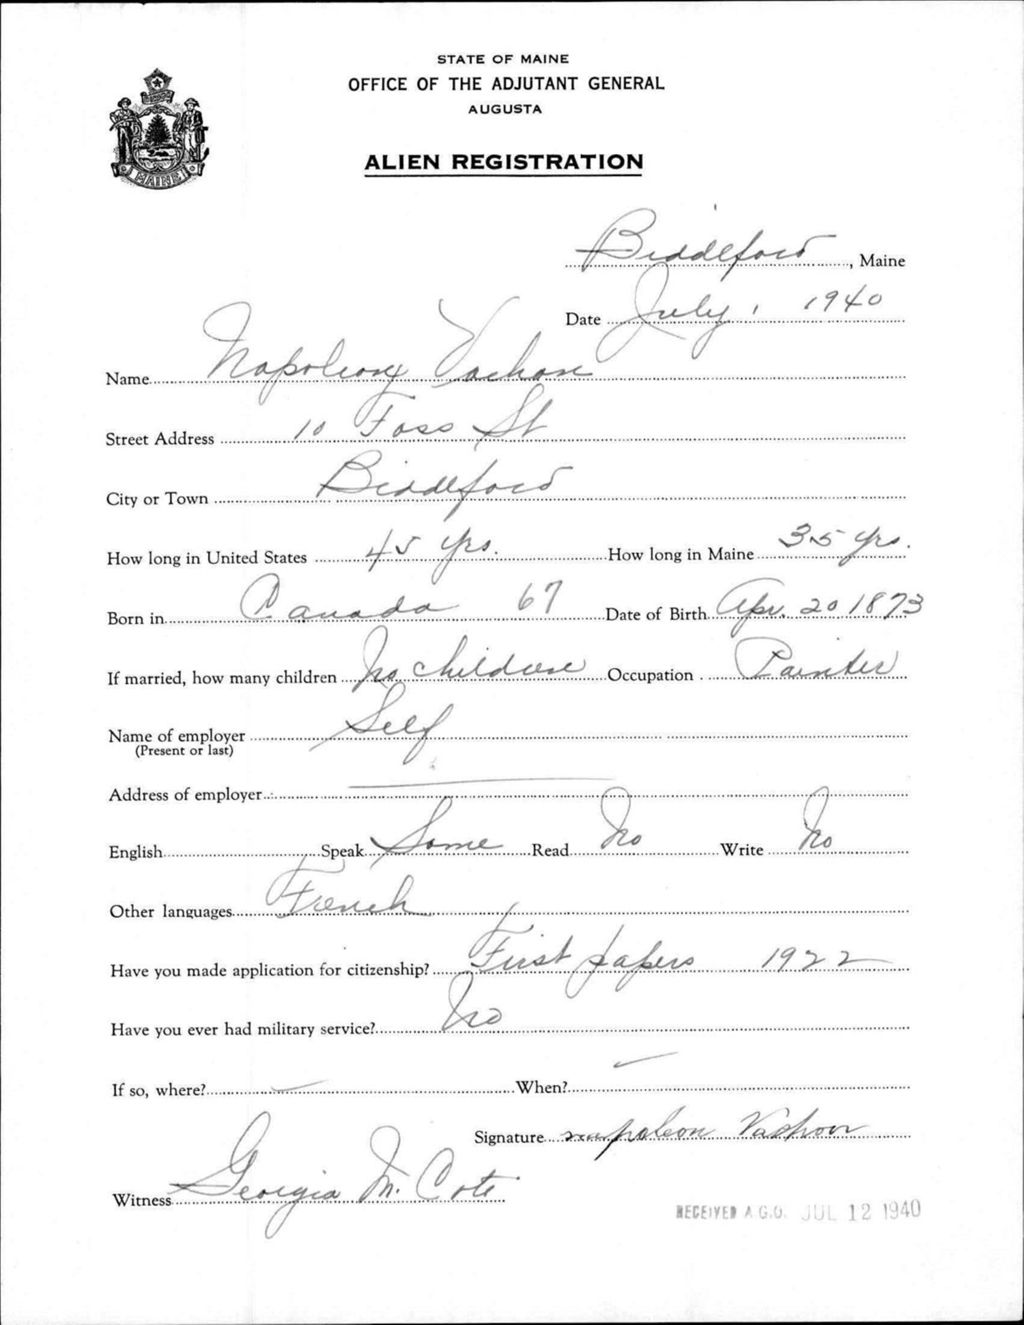 STATE OF MAINE
OFFICE OF THE ADJUTANT GENERAL
AUGUSTA
ALIEN REGISTRATION
MAINE
Biddeford, Maine
Date July 1, 1940
Name Napoleon Vachon
Street Address 10 Foss St
City or Town Biddeford
How long in United States 45 yrs. How long in Maine 35 yrs.
Born in Canada 67 Date of Birth Apr. 20 1873
If married, how many children No children Occupation Painter
Name of employer Self
(Present or last)
Address of employer
English Speak Some Read No Write No
Other languages French
Have you made application for citizenship? First papers 1922
Have you ever had military service? No
If so, where? When?
Signature napoleon Vachon
Witness Georgia M. Cote
RECEIVED A.G.O. JUL 12 1940